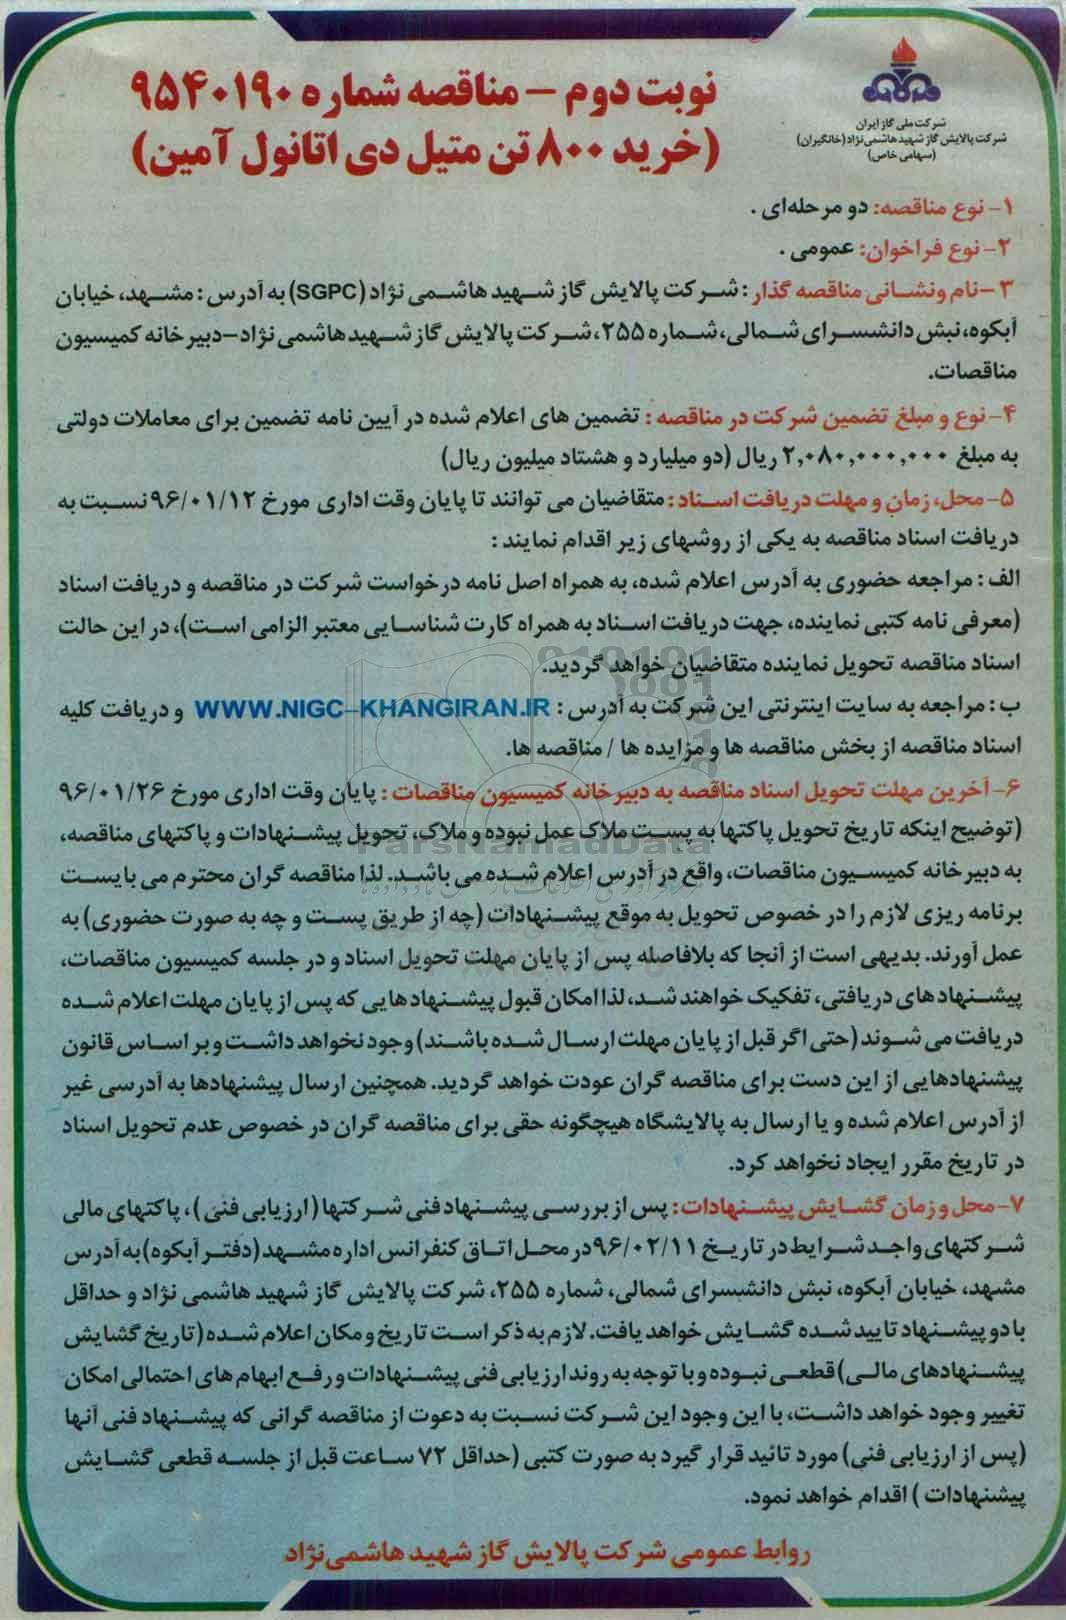 شرکت ملی گاز ایران
شرکت پالایش گاز شهید هاشمی‌نژاد (خانگیران)
(سهامی خاص)
نوبت دوم – مناقصه شماره ۹۵۴۰۱۹۰
(خرید ۸۰۰ تن متیل دی اتانول آمین)
۱- نوع مناقصه: دو مرحله‌ای .
۲- نوع فراخوان: عمومی .
۳- نام ونشانی مناقصه گذار : شرکت پالایش گاز شهید هاشمی نژاد (SGPC) به آدرس : مشهد، خیابان
آبکوه، نبش دانشسرای شمالی، شماره ۲۵۵، شرکت پالایش گاز شهید هاشمی نژاد – دبیرخانه کمیسیون
مناقصات.
۴- نوع و مبلغ تضمین شرکت در مناقصه : تضمین های اعلام شده در آیین نامه تضمین برای معاملات دولتی
به مبلغ ۲,۰۸۰,۰۰۰,۰۰۰ ریال (دو میلیارد و هشتاد میلیون ریال)
۵- محل، زمان و مهلت دریافت اسناد : متقاضیان می توانند تا پایان وقت اداری مورخ ۹۶/۰۱/۱۲ نسبت به
دریافت اسناد مناقصه به یکی از روشهای زیر اقدام نمایند :
الف : مراجعه حضوری به آدرس اعلام شده، به همراه اصل نامه درخواست شرکت در مناقصه و دریافت اسناد
(معرفی نامه کتبی نماینده، جهت دریافت اسناد به همراه کارت شناسایی معتبر الزامی است)، در این حالت
اسناد مناقصه تحویل نماینده متقاضیان خواهد گردید.
ب : مراجعه به سایت اینترنتی این شرکت به آدرس : WWW.NIGC-KHANGIRAN.IR و دریافت کلیه
اسناد مناقصه از بخش مناقصه ها و مزایده ها / مناقصه ها.
۶- آخرین مهلت تحویل اسناد مناقصه به دبیرخانه کمیسیون مناقصات : پایان وقت اداری مورخ ۹۶/۰۱/۲۶
(توضیح اینکه تاریخ تحویل پاکتها به پست ملاک عمل نبوده و ملاک، تحویل پیشنهادات و پاکتهای مناقصه،
به دبیرخانه کمیسیون مناقصات، واقع در آدرس اعلام شده می باشد. لذا مناقصه گران محترم می بایست
برنامه ریزی لازم را در خصوص تحویل به موقع پیشنهادات (چه از طریق پست و چه به صورت حضوری) به
عمل آورند. بدیهی است از آنجا که بلافاصله پس از پایان مهلت تحویل اسناد و در جلسه کمیسیون مناقصات،
پیشنهاد های دریافتی، تفکیک خواهند شد، لذا امکان قبول پیشنهادهایی که پس از پایان مهلت اعلام شده
دریافت می شوند (حتی اگر قبل از پایان مهلت ارسال شده باشند) وجود نخواهد داشت و بر اساس قانون
پیشنهادهایی از این دست برای مناقصه گران عودت خواهد گردید. همچنین ارسال پیشنهادها به آدرسی غیر
از آدرس اعلام شده و یا ارسال به پالایشگاه هیچگونه حقی برای مناقصه گران در خصوص عدم تحویل اسناد
در تاریخ مقرر ایجاد نخواهد کرد.
۷- محل و زمان گشایش پیشنهادات : پس از بررسی پیشنهاد فنی شرکتها (ارزیابی فنی )، پاکتهای مالی
شرکتهای واجد شرایط در تاریخ ۹۶/۰۲/۱۱ در محل اتاق کنفرانس اداره مشهد (دفتر آبکوه) به آدرس
مشهد، خیابان آبکوه، نبش دانشسرای شمالی، شماره ۲۵۵، شرکت پالایش گاز شهید هاشمی نژاد و حداقل
با دو پیشنهاد تایید شده گشایش خواهد یافت. لازم به ذکر است تاریخ و مکان اعلام شده (تاریخ گشایش
پیشنهادهای مالی) قطعی نبوده و با توجه به روند ارزیابی فنی پیشنهادات و رفع ابهام های احتمالی امکان
تغییر وجود خواهد داشت، با این وجود این شرکت نسبت به دعوت از مناقصه گرانی که پیشنهاد فنی آنها
(پس از ارزیابی فنی) مورد تائید قرار گیرد به صورت کتبی (حداقل ۷۲ ساعت قبل از جلسه قطعی گشایش
پیشنهادات ) اقدام خواهد نمود.
روابط عمومی شرکت پالایش گاز شهید هاشمی‌نژاد
ParsNamadData